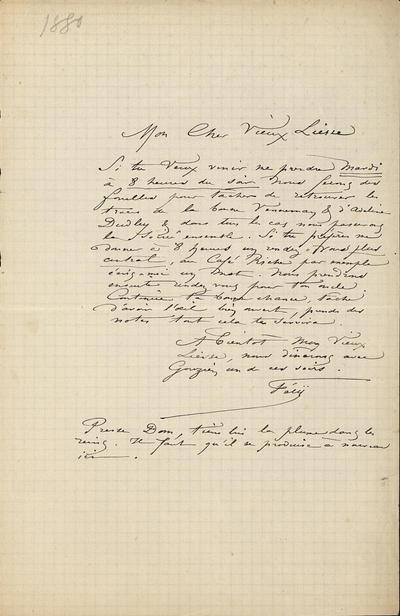 1880
Mon Cher Vieux Liesse
Si tu veux venir me prendre Mardi
à 8 heures du soir nous ferons des
fouilles pour tâcher de retrouver les
traces de la bonne & d'Adeline
Dudley & dans tous les cas nous passerons
la soirée ensemble. Si tu préfères me
donner à 8 heures un rendez-vous plus
central, au Café Riche par exemple
écris-moi un mot. Nous prendrons
ensuite rendez vous pour ton oncle.
Continue ta bonne chance, tâche
d'avoir l'œil bien ouvert, prends des
notes tout cela te servira.
A Bientôt Mon Vieux
Liesse, nous dînerons avec
Gouzien un de ces soirs.
Fély
Presse Dom, tiens lui la plume dans les
reins. Il faut qu'il se produise à nouveau
ici.